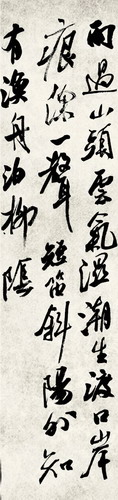 雨過山頭雲氣濕潮生渡口岸
痕深一聲短笛斜陽外知
有漁舟泊柳陰